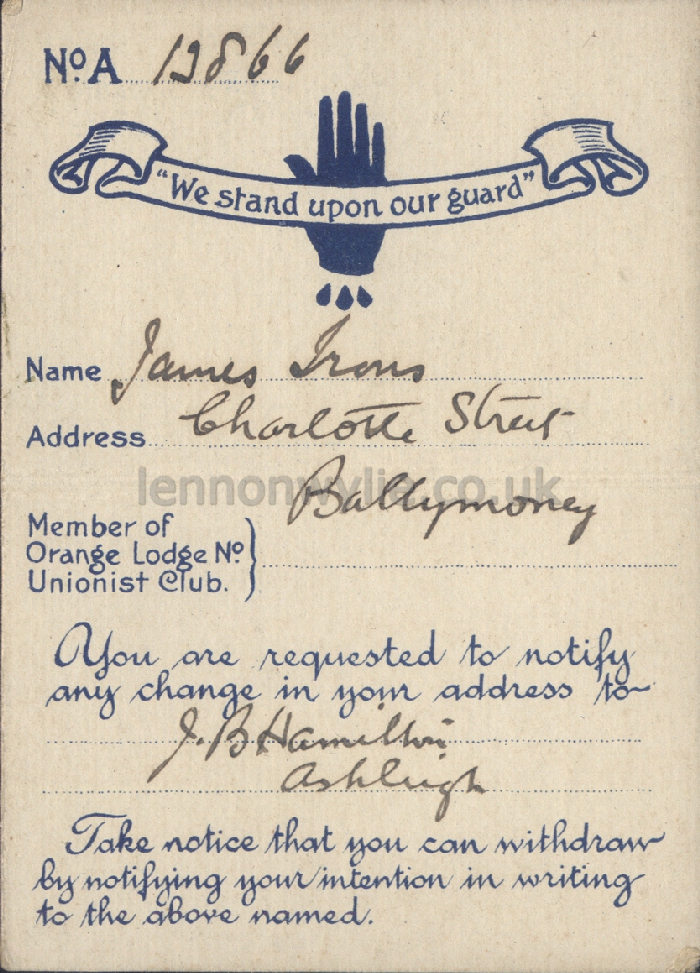 No. A 12866
"We stand upon our guard"
Name James Irons
Address Charlotte Street
Ballymoney
lennonwylie.co.uk
Member of
Orange Lodge No.
Unionist Club.
You are requested to notify
any change in your address to
J. B Hamilton
Ashleigh
Take notice that you can withdraw
by notifying your intention in writing
to the above named.